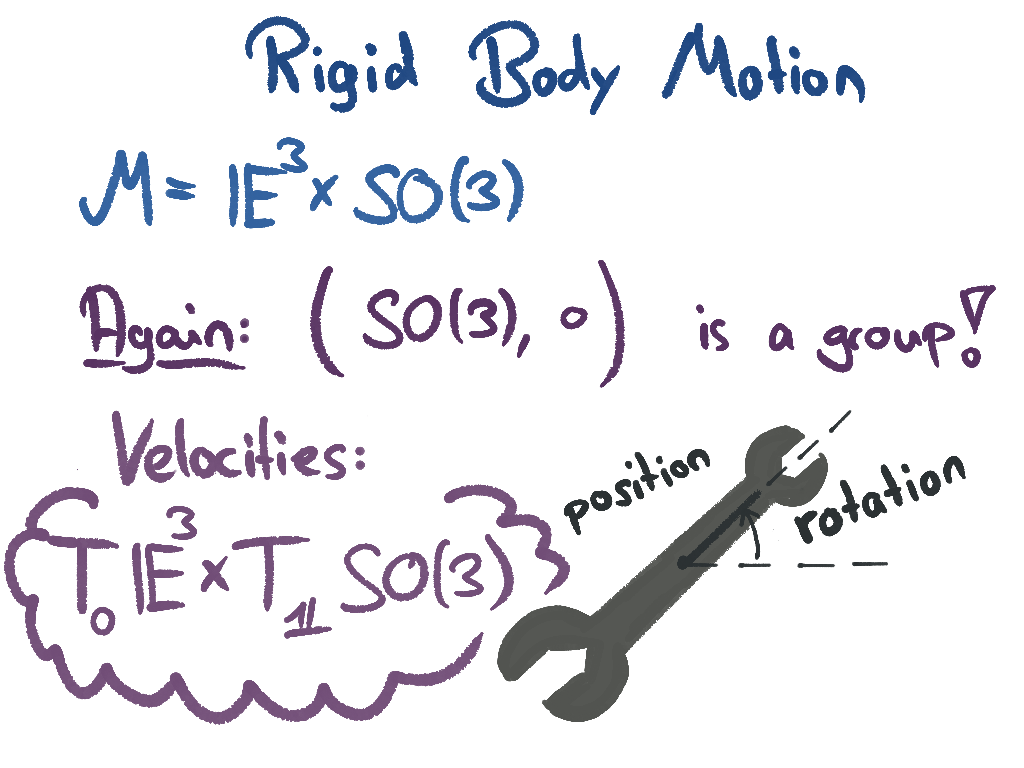 Rigid Body Motion
M = 𝔼³ × SO(3)
Again: (SO(3), ∘) is a group!
Velocities:
T₀𝔼³ × T_𝟙 SO(3)
position
rotation